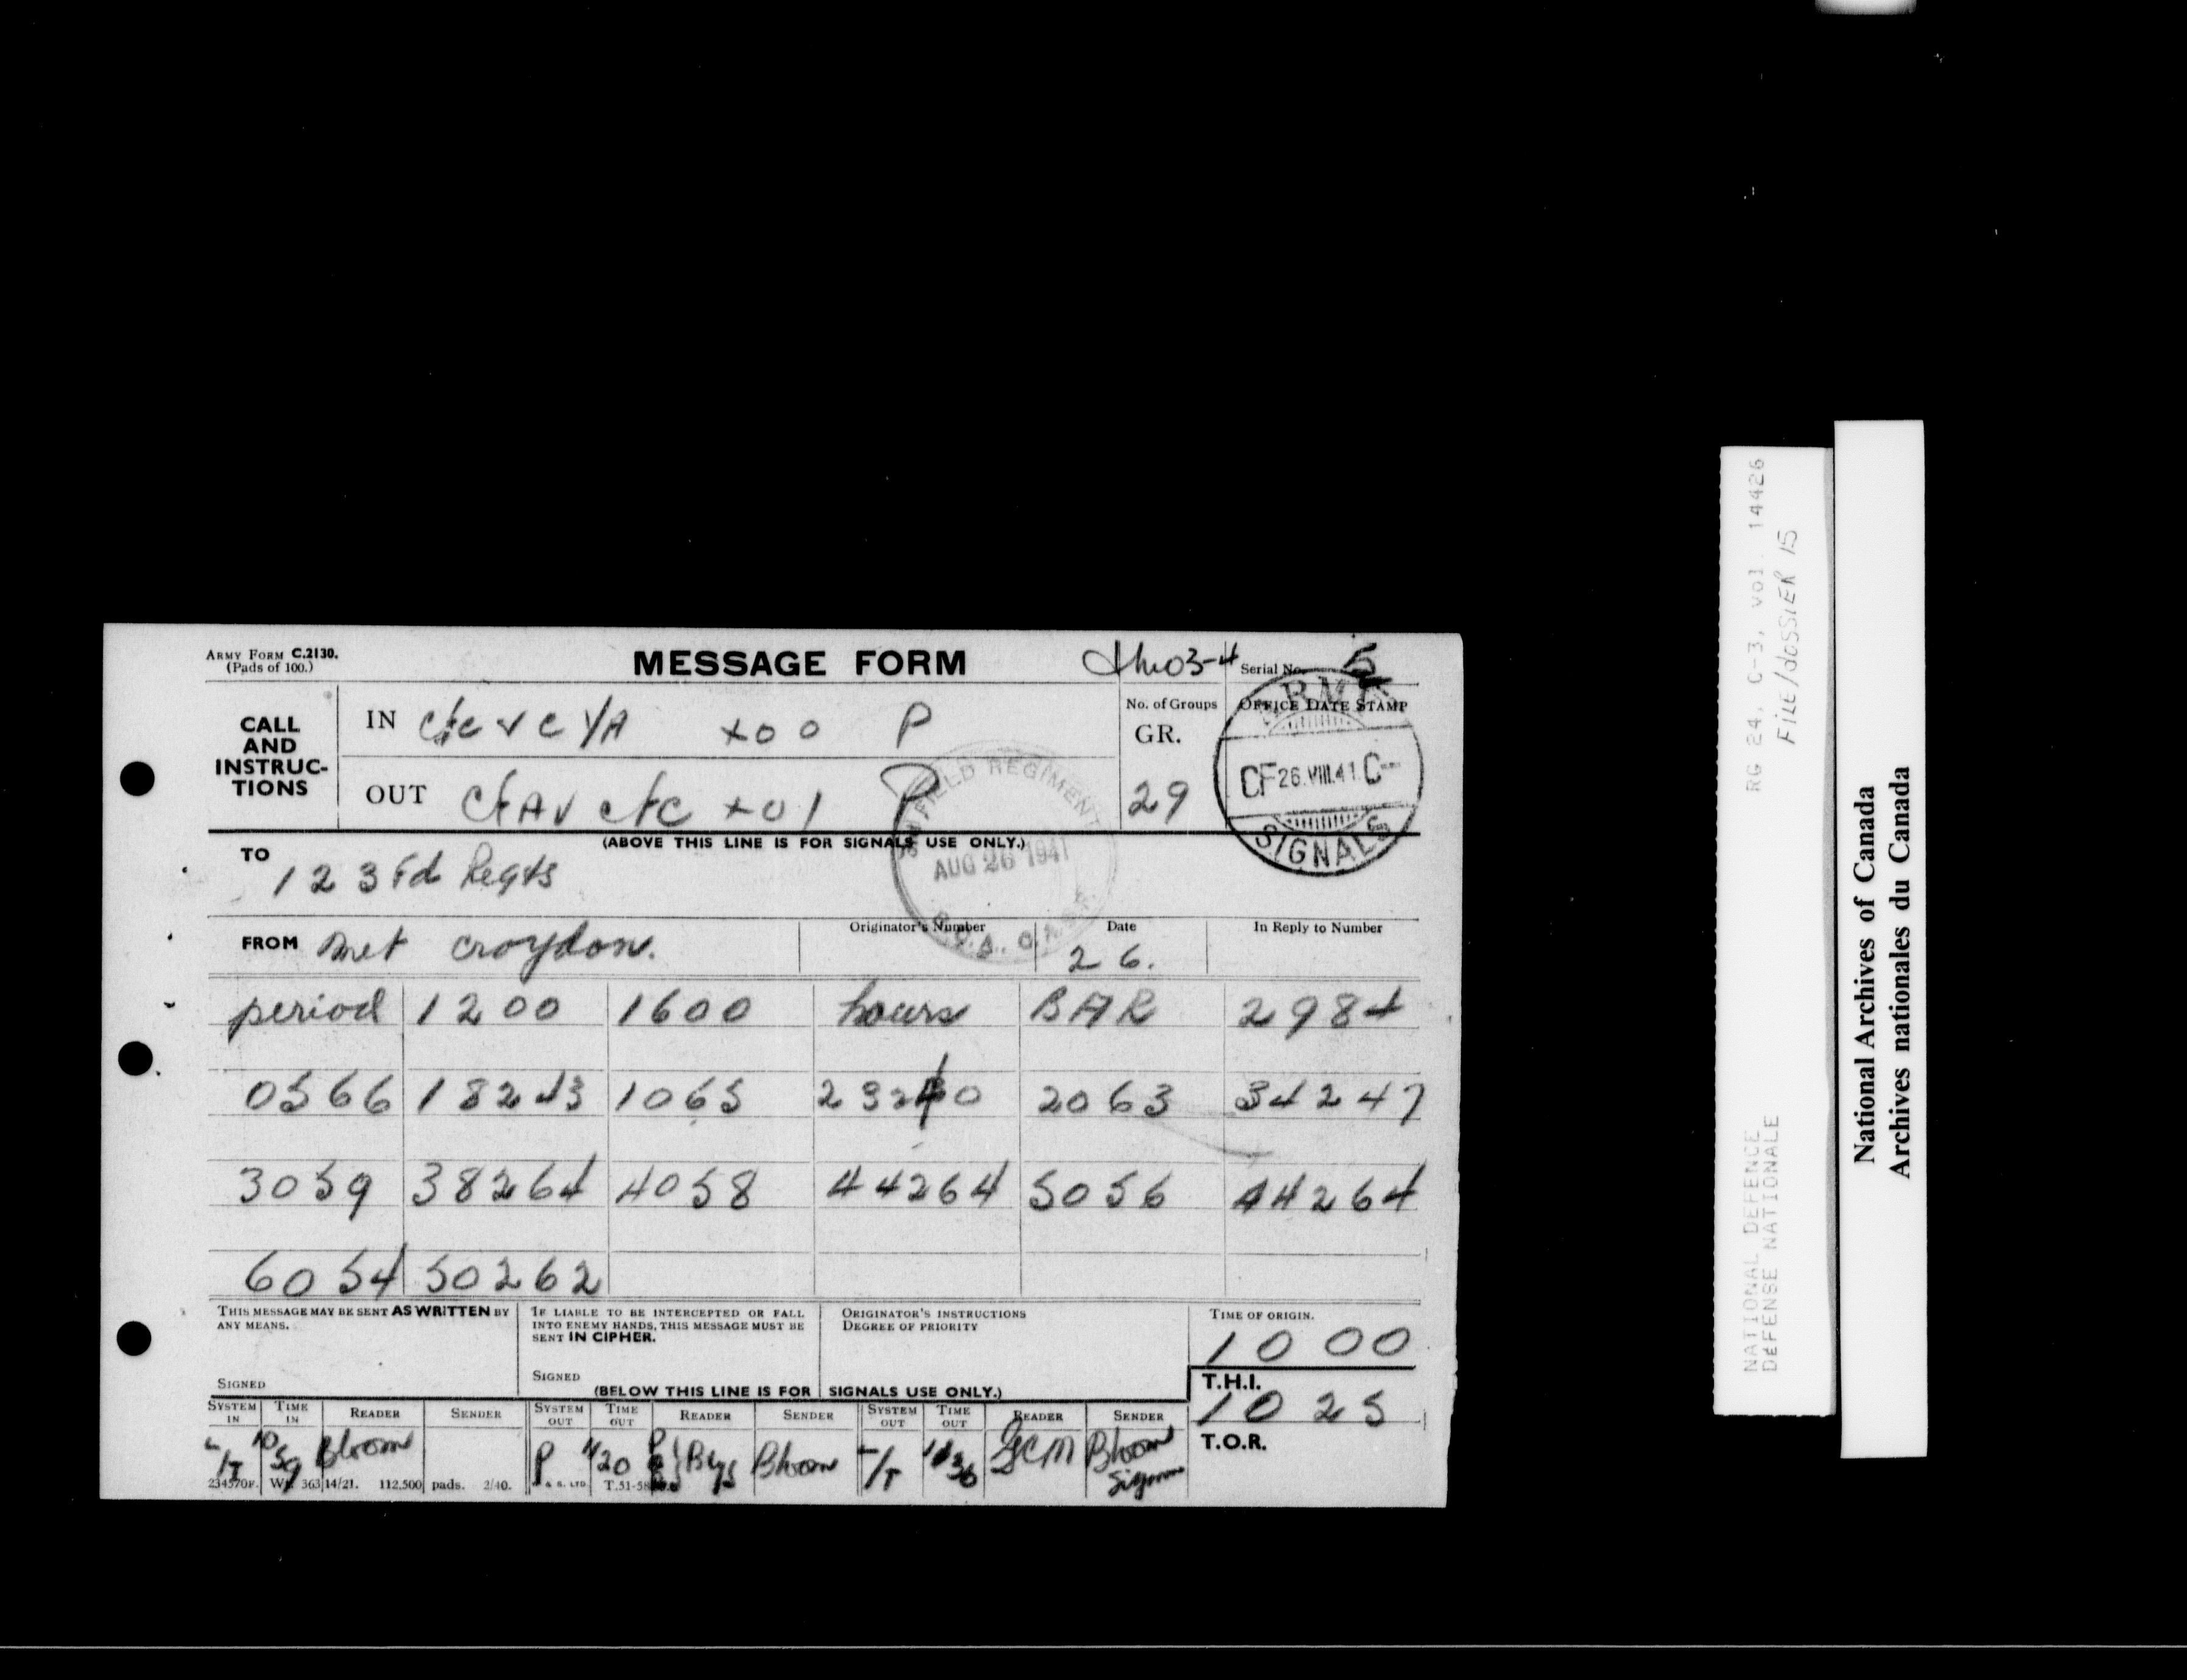 ARMY FORM C.2130.
(Pads of 100.)
MESSAGE FORM
Serial No. 5
CALL AND INSTRUC-TIONS
IN
+00 P
No. of Groups
GR.
29
OFFICE DATE STAMP
ARMY
CF 26.VIII.41.C
SIGNALS
OUT
+01 P
FIELD REGIMENT
AUG 26 1941
(ABOVE THIS LINE IS FOR SIGNALS USE ONLY.)
TO 1 2 3 Fd Regts
FROM Met Croydon.
Originator's Number
Date
26.
In Reply to Number
period 1200 1600 hours BAR 2984
0566 18243 1065 2063 34247
3059 38264 4058 44264 5056 44264
6054 50262
THIS MESSAGE MAY BE SENT AS WRITTEN BY ANY MEANS.
SIGNED
IF LIABLE TO BE INTERCEPTED OR FALL INTO ENEMY HANDS, THIS MESSAGE MUST BE SENT IN CIPHER.
SIGNED
ORIGINATOR'S INSTRUCTIONS
DEGREE OF PRIORITY
TIME OF ORIGIN.
1000
T.H.I.
1025
T.O.R.
(BELOW THIS LINE IS FOR SIGNALS USE ONLY.)
SYSTEM IN TIME IN READER SENDER SYSTEM OUT TIME OUT READER SENDER SYSTEM OUT TIME OUT READER SENDER
/T 1059 Bloom P 1120 Btys Bloom /T 1136 GCM Bloom
Sigmn
234570F. Wt. 363 14/21. 112,500 pads. 2/40.
RG 24, C-3, vol. 14426
FILE/dossier 15
NATIONAL DEFENCE
DEFENSE NATIONALE
National Archives of Canada
Archives nationales du Canada